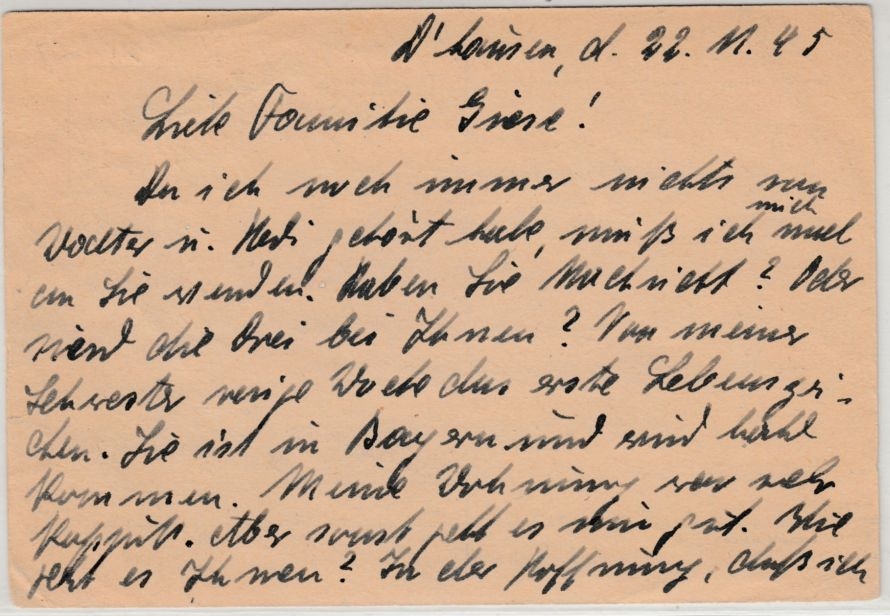 D'hausen, d. 22. 11. 45
Liebe Familie Giese!
Da ich noch immer nichts von
Walter u. Hedi gehört habe, muß ich mich mal
an Sie wenden. Haben Sie Nachricht? Oder
sind die drei bei Ihnen? Von meiner
Schwester vorige Woche das erste Lebenszei-
chen. Sie ist in Bayern und wird bald
kommen. Meine Wohnung war sehr
kaputt. Aber sonst geht es mir gut. Wie
geht es Ihnen? In der Hoffnung, daß ich